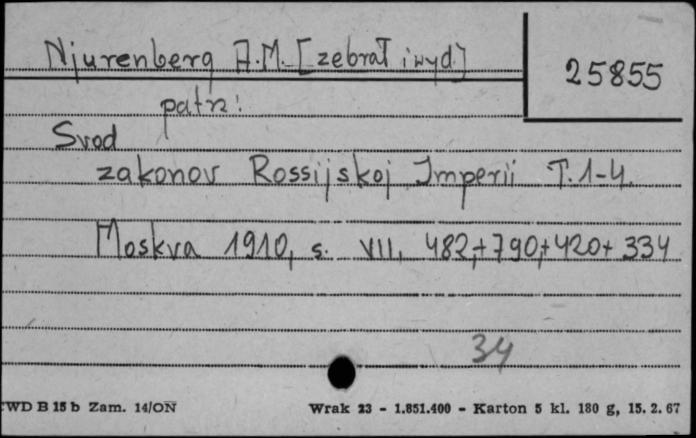 Njurenberg A.M. [zebrał i wyd.]
25855
patrz:
Svod
zakonov Rossijskoj Imperii T.1-4.
Moskva 1910, s. VII, 482,+790,+420+ 334
34
WD B 15 b Zam. 14/ON
Wrak 23 - 1.851.400 - Karton 5 kl. 180 g, 15. 2. 67